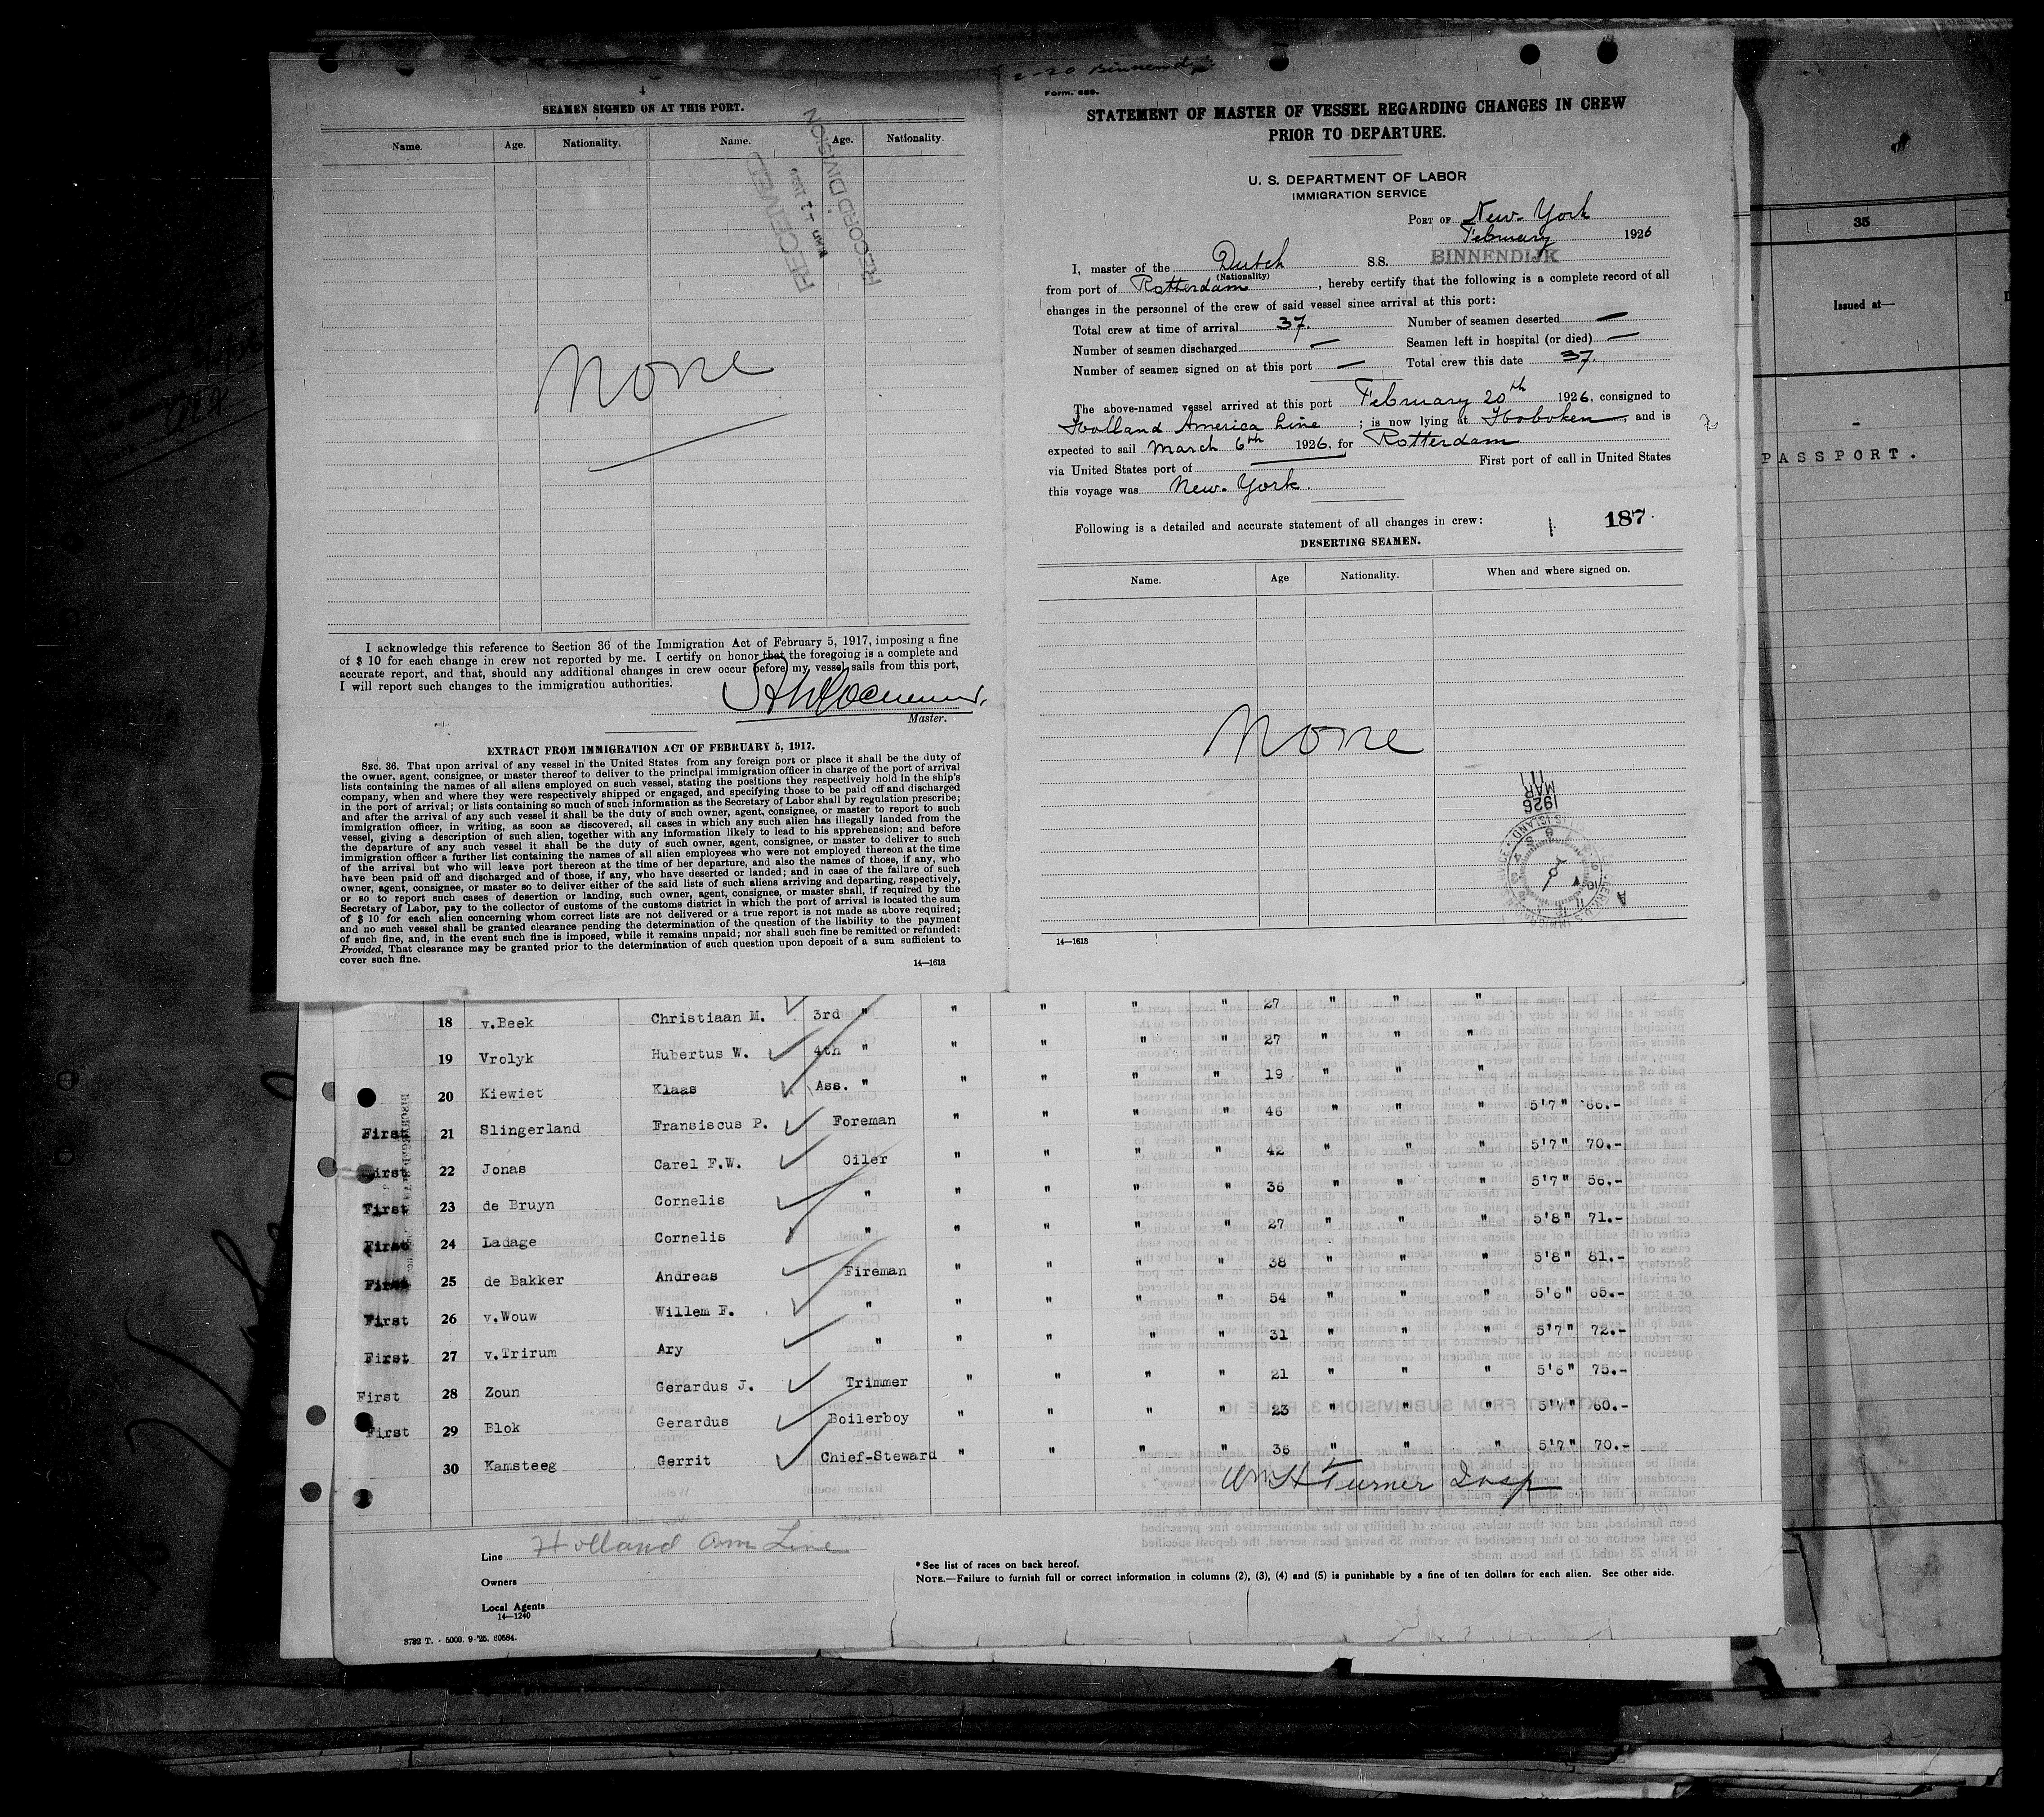 4
SEAMEN SIGNED ON AT THIS PORT.
Name. Age. Nationality. Name. Age. Nationality.
RECEIVED
RECORD DIVISION
None
I acknowledge this reference to Section 36 of the Immigration Act of February 5, 1917, imposing a fine
of $ 10 for each change in crew not reported by me. I certify on honor that the foregoing is a complete and
accurate report, and that, should any additional changes in crew occur before my vessel sails from this port,
I will report such changes to the immigration authorities.
Master.
EXTRACT FROM IMMIGRATION ACT OF FEBRUARY 5, 1917.
SEC. 36. That upon arrival of any vessel in the United States from any foreign port or place it shall be the duty of
the owner, agent, consignee, or master thereof to deliver to the principal immigration officer in charge of the port of arrival
lists containing the names of all aliens employed on such vessel, stating the positions they respectively hold in the ship's
company, when and where they were respectively shipped or engaged, and specifying those to be paid off and discharged
in the port of arrival; or lists containing so much of such information as the Secretary of Labor shall by regulation prescribe;
and after the arrival of any such vessel it shall be the duty of such owner, agent, consignee, or master to report to such
immigration officer, in writing, as soon as discovered, all cases in which any such alien has illegally landed from the
vessel, giving a description of such alien, together with any information likely to lead to his apprehension; and before
the departure of any such vessel it shall be the duty of such owner, agent, consignee, or master to deliver to such
immigration officer a further list containing the names of all alien employees who were not employed thereon at the time
of the arrival but who will leave port thereon at the time of her departure, and also the names of those, if any, who
have been paid off and discharged and of those, if any, who have deserted or landed; and in case of the failure of such
owner, agent, consignee, or master so to deliver either of the said lists of such aliens arriving and departing, respectively,
or so to report such cases of desertion or landing, such owner, agent, consignee, or master shall, if required by the
Secretary of Labor, pay to the collector of customs of the customs district in which the port of arrival is located the sum
of $ 10 for each alien concerning whom correct lists are not delivered or a true report is not made as above required;
and no such vessel shall be granted clearance pending the determination of the question of the liability to the payment
of such fine, and, in the event such fine is imposed, while it remains unpaid; nor shall such fine be remitted or refunded:
Provided, That clearance may be granted prior to the determination of such question upon deposit of a sum sufficient to
cover such fine.
14—1618
Form. 689.
STATEMENT OF MASTER OF VESSEL REGARDING CHANGES IN CREW
PRIOR TO DEPARTURE.
U. S. DEPARTMENT OF LABOR
IMMIGRATION SERVICE
PORT OF New-York
February 1926
I, master of the Dutch S.S. BINNENDIJK
(Nationality)
from port of Rotterdam, hereby certify that the following is a complete record of all
changes in the personnel of the crew of said vessel since arrival at this port:
Total crew at time of arrival 37. Number of seamen deserted —
Number of seamen discharged — Seamen left in hospital (or died) —
Number of seamen signed on at this port — Total crew this date 37.
The above-named vessel arrived at this port February 20th 1926, consigned to
Holland America Line; is now lying at Hoboken, and is
expected to sail March 6th 1926, for Rotterdam
via United States port of — First port of call in United States
this voyage was New-York.
Following is a detailed and accurate statement of all changes in crew: 187.
DESERTING SEAMEN.
Name. Age Nationality. When and where signed on.
None
1926
MAR
11
14—1618
35
Issued at—
PASSPORT.
27 " " "
18 v.Beek Christiaan M. 3rd " " " " " 27 " " "
19 Vrolyk Hubertus W. 4th " " " " " 19 " " "
20 Kiewiet Klaas Ass. " " " " " 46 " " " 5'7" 66.-
First 21 Slingerland Fransiscus P. Foreman " " " " 42 " " " 5'7" 70.-
First 22 Jonas Carel F.W. Oiler " " " " 36 " " " 5'7" 56.-
First 23 de Bruyn Cornelis " " " " " 27 " " " 5'8" 71.-
First 24 Ladage Cornelis " " " " " 38 " " " 5'8" 81.-
First 25 de Bakker Andreas Fireman " " " " 54 " " " 5'6" 65.-
First 26 v.Wouw Willem F. " " " " " 31 " " " 5'7" 72.-
First 27 v.Trirum Ary " " " " " 21 " " " 5'6" 75.-
First 28 Zoun Gerardus J. Trimmer " " " " 23 " " " 60.-
First 29 Blok Gerardus Boilerboy " " " " 36 " " " 5'7" 70.-
30 Kamsteeg Gerrit Chief-Steward
Wm H Turner Insp
Line Holland Am Line
Owners
Local Agents
14—1240
3782 T. - 5000. 9-'25. 60584.
* See list of races on back hereof.
NOTE.—Failure to furnish full or correct information in columns (2), (3), (4) and (5) is punishable by a fine of ten dollars for each alien. See other side.